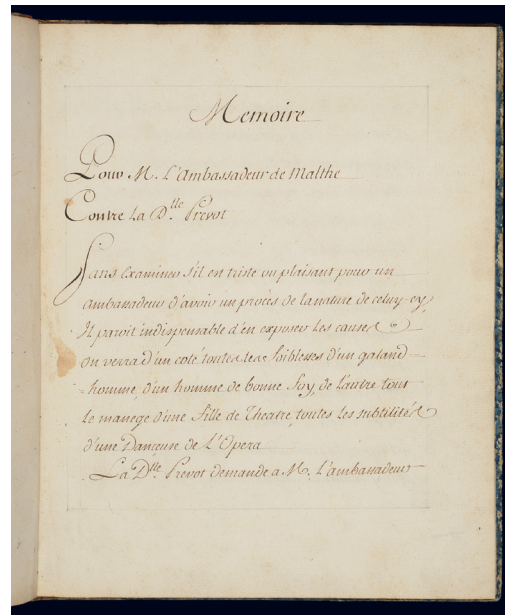 Memoire
Pour M. L'Ambassadeur de Malthe
Contre La D.lle Prevot
Sans Examiner s'il en triste ou plaisant pour un
ambassadeur d'avoir un procès de la nature de celuy-cy,
Il paroit indispensable d'en exposer les causes
on verra d'un coté toutes les foiblesses d'un galand=
=homme, d'un homme de bonne foy, de l'autre tout
le manege d'une fille de Theatre, toutes les subtilités
d'une Danseuse de L'Opera
La D.lle Prevot demande a M. L'ambassadeur